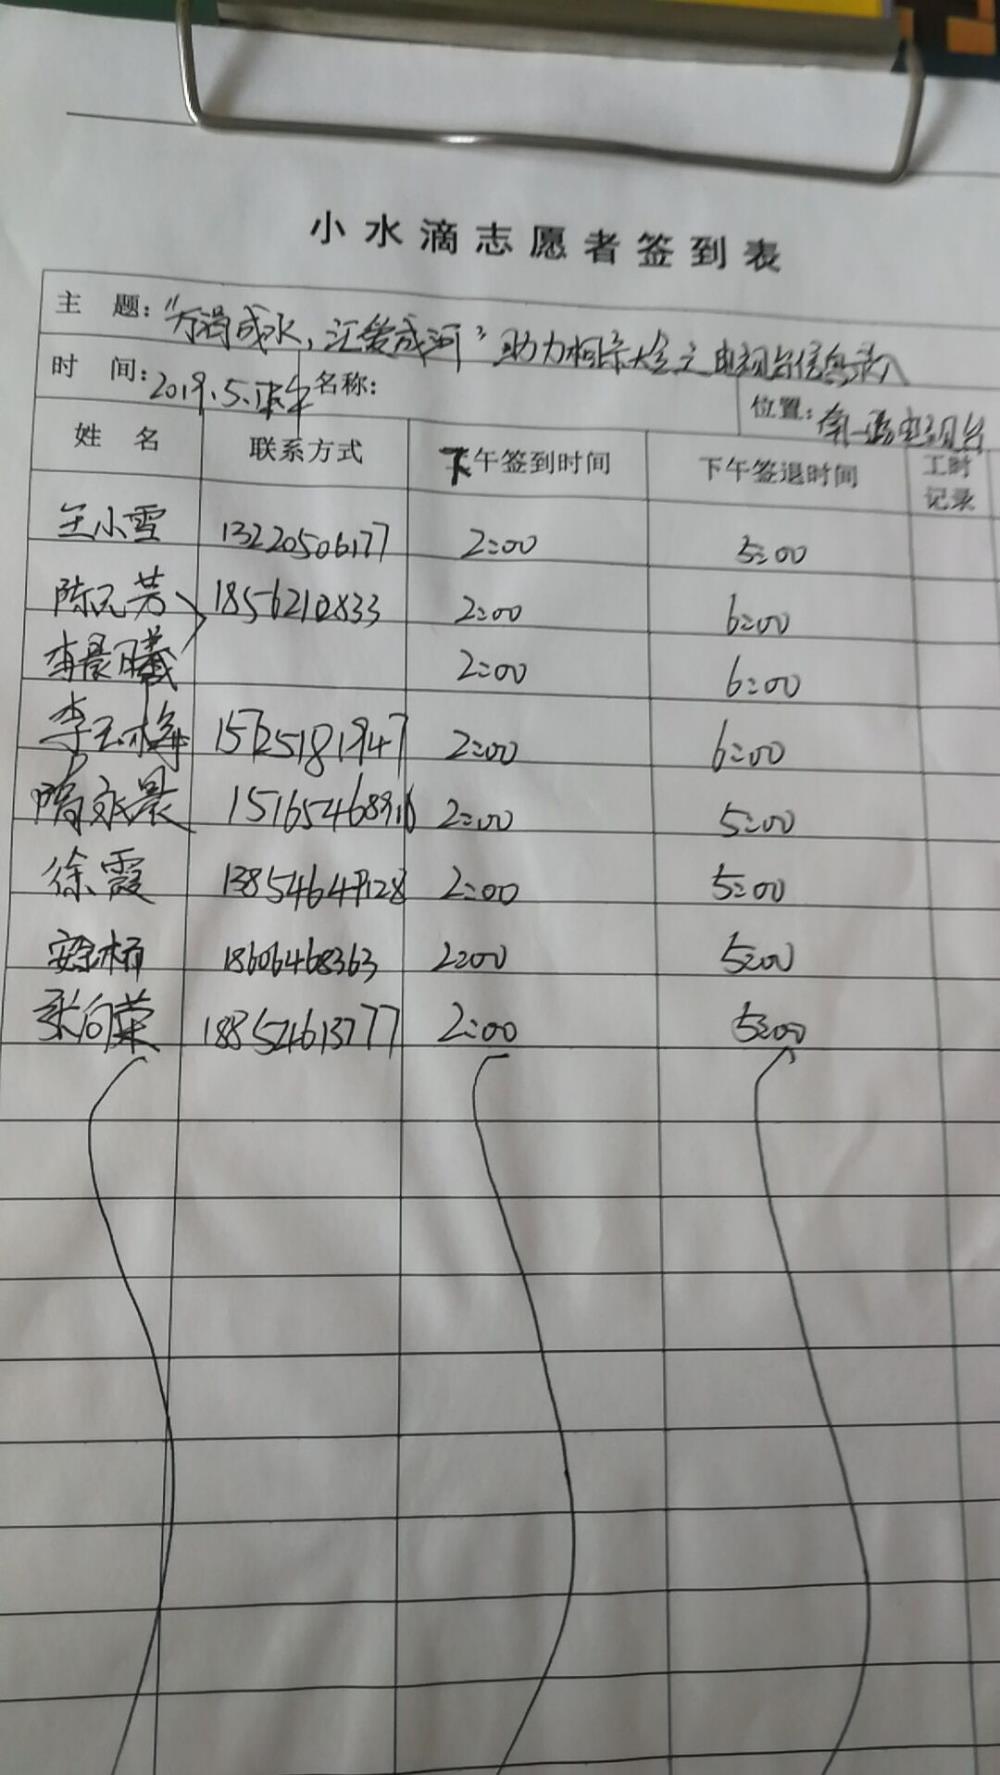 小水滴志愿者签到表
主 题：“万滴成水，汇爱成河”助力相亲大会之电视台信息录入
时 间：2019.5.1下午 名称： 位置：电视台
姓 名 联系方式 下午签到时间 下午签退时间 工时记录
王小雪 13220506177 2:00 5:00
陈元芳 1856210833 2:00 6:00
李晨曦 2:00 6:00
李玉梅 15725181947 2:00 6:00
隋永晨 15165468916 2:00 5:00
徐霞 13854649128 2:00 5:00
18606468363 2:00 5:00
张向荣 188524613777 2:00 5:00